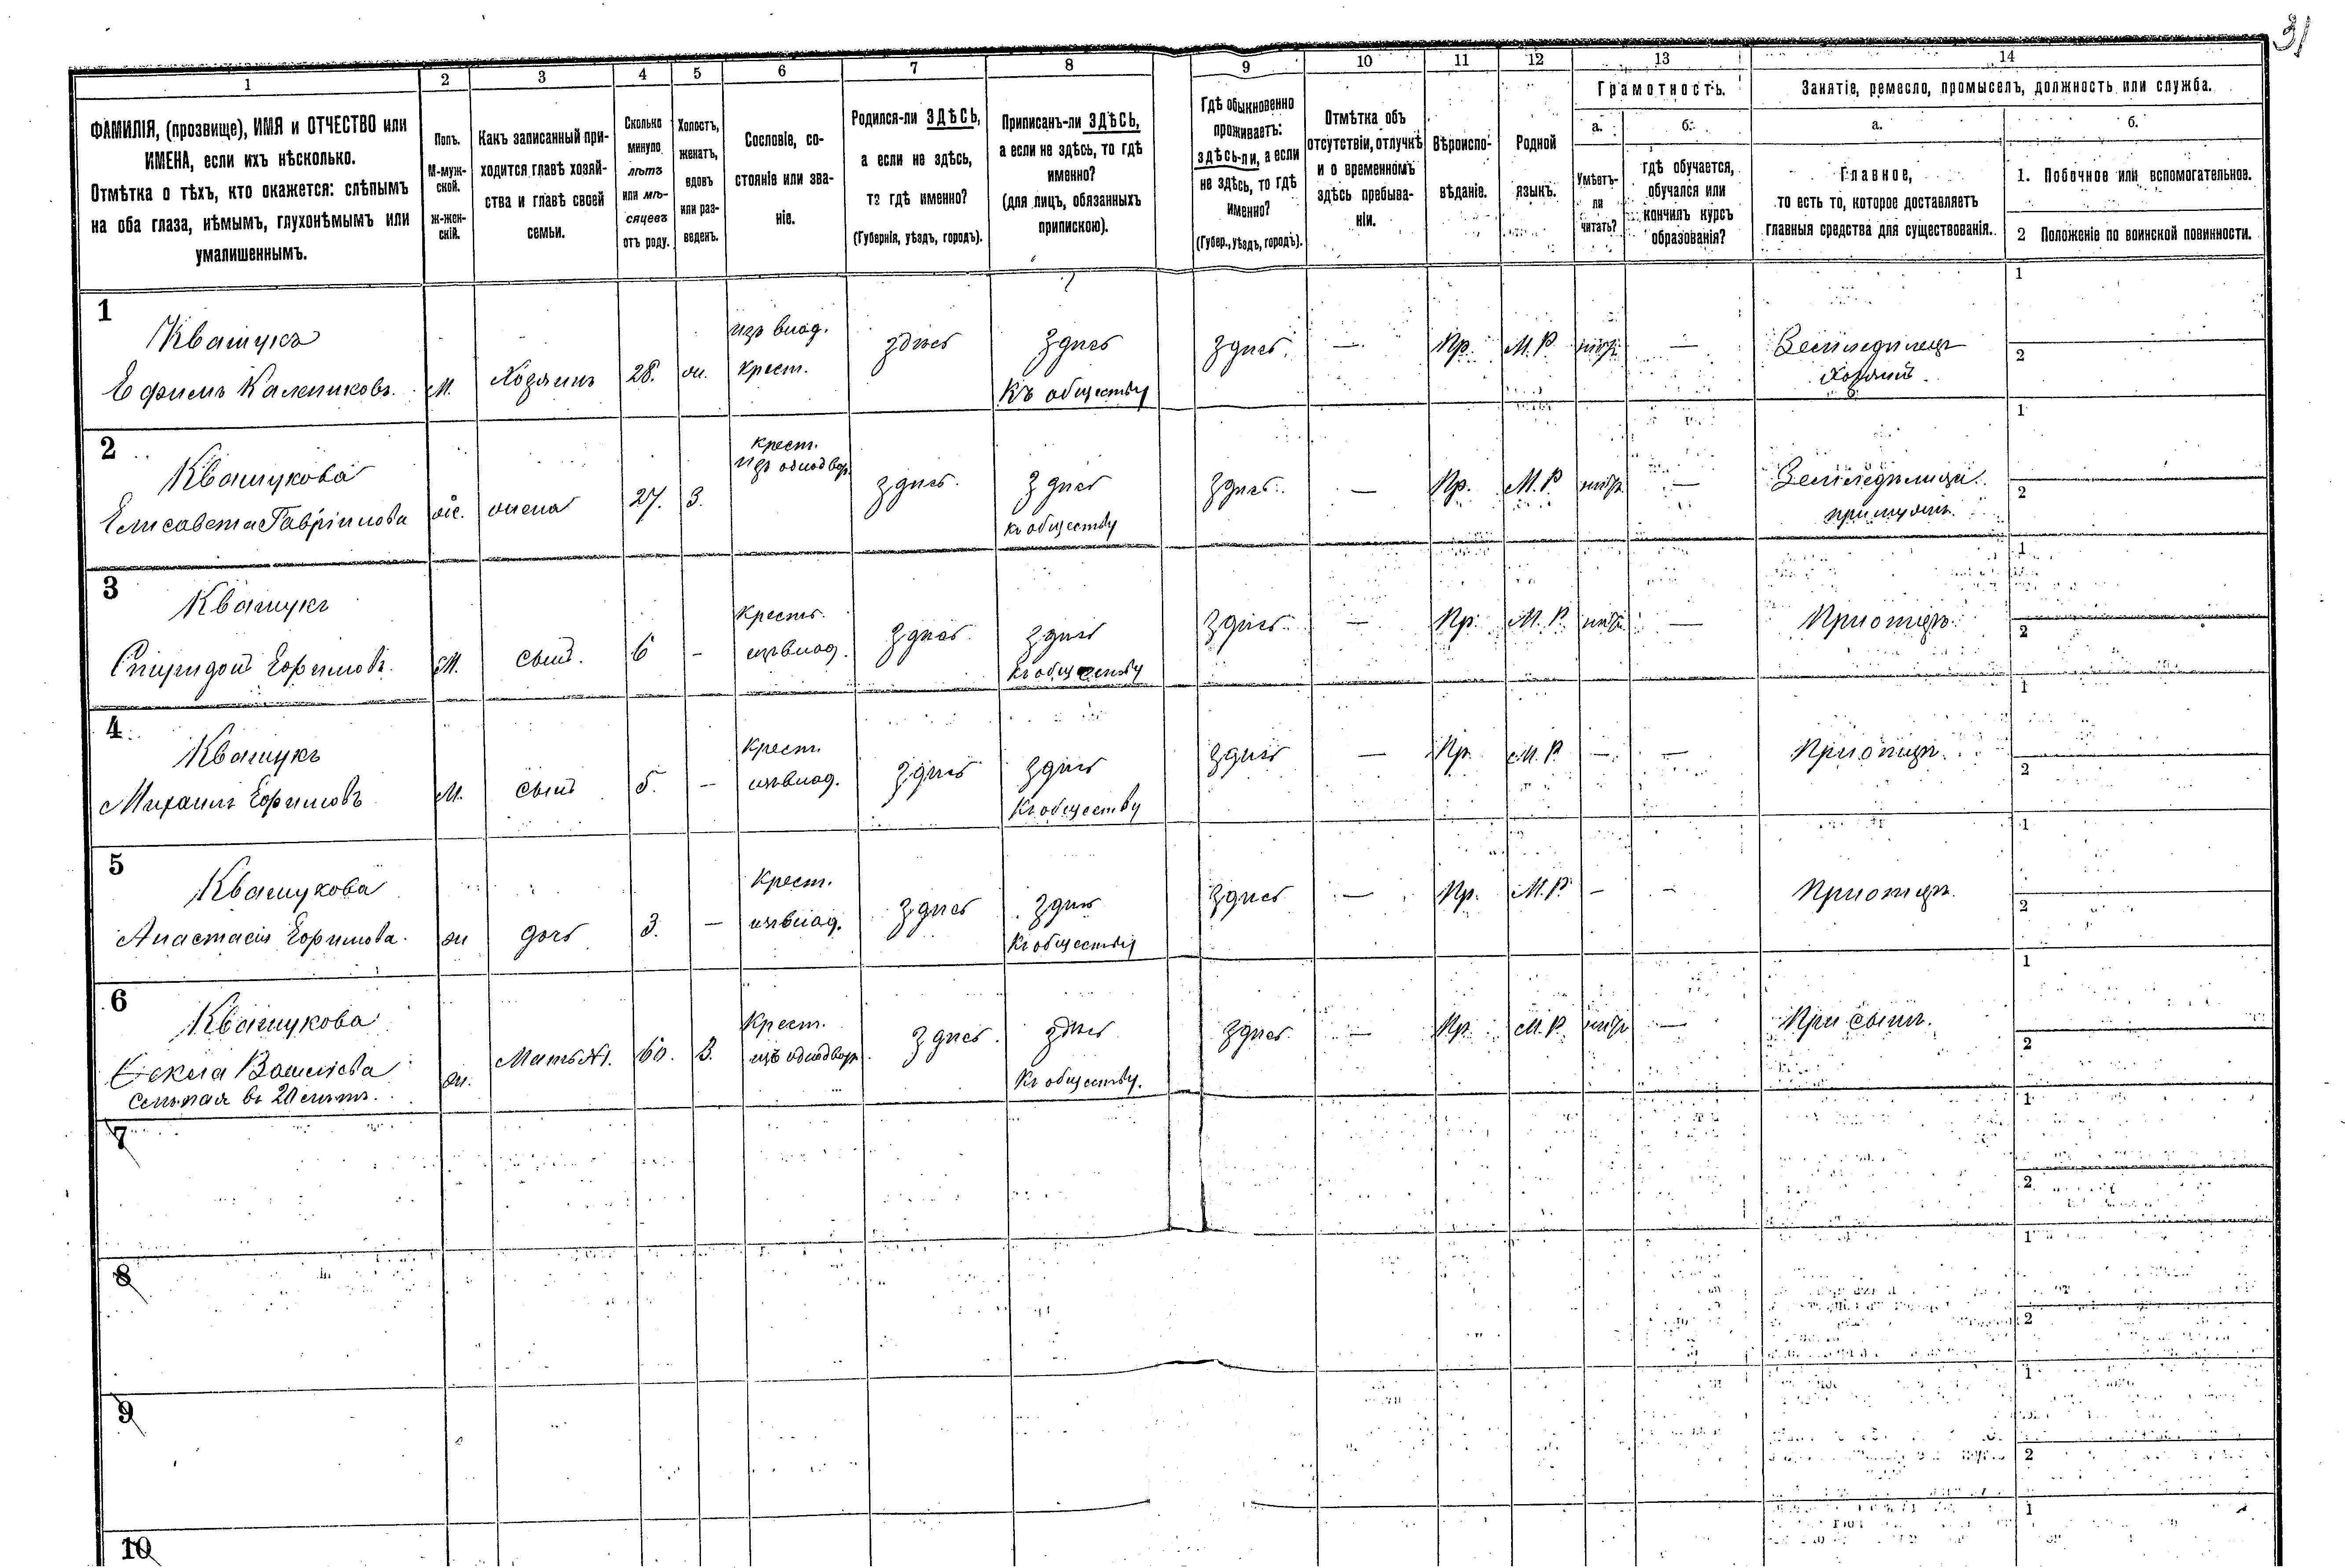 31
1 2 3 4 5 6 7 8 9 10 11 12 13 14
ФАМИЛІЯ, (прозвище), ИМЯ и ОТЧЕСТВО или
ИМЕНА, если ихъ нѣсколько.
Отмѣтка о тѣхъ, кто окажется: слѣпымъ
на оба глаза, нѣмымъ, глухонѣмымъ или
умалишеннымъ.
Полъ.
М-муж-
ской.
ж-жен-
скій.
Какъ записанный при-
ходится главѣ хозяй-
ства и главѣ своей
семьи.
Сколько
минуло
лѣтъ
или мѣ-
сяцевъ
отъ роду.
Холостъ,
женатъ,
вдовъ
или раз-
веденъ.
Сословіе, со-
стояніе или зва-
ніе.
Родился-ли ЗДѢСЬ,
а если не здѣсь,
то гдѣ именно?
(Губернія, уѣздъ, городъ).
Приписанъ-ли ЗДѢСЬ,
а если не здѣсь, то гдѣ
именно?
(для лицъ, обязанныхъ
припискою).
Гдѣ обыкновенно
проживаетъ:
здѣсь-ли, а если
не здѣсь, то гдѣ
именно?
(Губер., уѣздъ, городъ).
Отмѣтка объ
отсутствіи, отлучкѣ
и о временномъ
здѣсь пребыва-
ніи.
Вѣроиспо-
вѣданіе.
Родной
языкъ.
Грамотность.
а.
Умѣетъ-
ли
читать?
б.
гдѣ обучается,
обучался или
кончилъ курсъ
образованія?
Занятіе, ремесло, промыселъ, должность или служба.
а.
Главное,
то есть то, которое доставляетъ
главныя средства для существованія.
б.
1. Побочное или вспомогательное.
2 Положеніе по воинской повинности.
1
Квашукъ
Ефимъ Калениковъ. М. Хозяинъ 28. ж. изъ влад. крест. здѣсь здѣсь къ обществу здѣсь. — Пр. М. Р. нѣтъ — Земледѣлецъ хозяинъ.
1
2
2
Квашукова
Елисавета Гавріилова ж. жена 27. З. крест. изъ однодвор. здѣсь. здѣсь къ обществу здѣсь. — Пр. М. Р. нѣтъ — Земледѣлица при мужѣ.
1
2
3
Квашукъ
Спиридонъ Ефимовъ. М. сынъ. 6 - крест. изъ влад. здѣсь. здѣсь къ обществу здѣсь. — Пр. М. Р. нѣтъ — При отцѣ.
1
2
4
Квашукъ
Михаилъ Ефимовъ М. сынъ 5. — крест. изъ влад. здѣсь здѣсь къ обществу здѣсь — Пр. М. Р. — — При отцѣ.
1
2
5
Квашукова
Анастасія Ефимова. ж дочь 3. — крест. изъ влад. здѣсь здѣсь къ обществу здѣсь — Пр. М. Р. — - При отцѣ.
1
2
6
Квашукова
Васильева ж. Мать №1. 60. В. Крест. изъ однодвор. здѣсь. здѣсь къ обществу. здѣсь. — Пр. М. Р. нѣтъ — При сынѣ.
Слѣпая въ 20 лѣтъ.
1
2
7
1
2
8
1
2
9
1
2
10
1